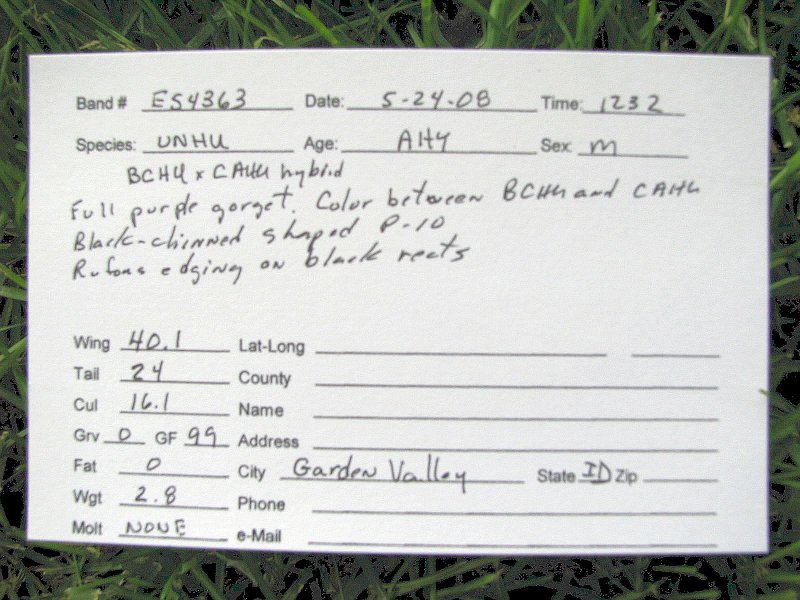 Band # E54363 Date: 5-24-08 Time: 1232
Species: UNHU Age: AHY Sex: M
BCHU x CAHU hybrid
Full purple gorget. Color between BCHU and CAHU
Black-chinned shaped P-10
Rufous edging on black rects
Wing 40.1 Lat-Long
Tail 24 County
Cul 16.1 Name
Grv 0 GF 99 Address
Fat 0 City Garden Valley State ID Zip
Wgt 2.8 Phone
Molt NONE e-Mail